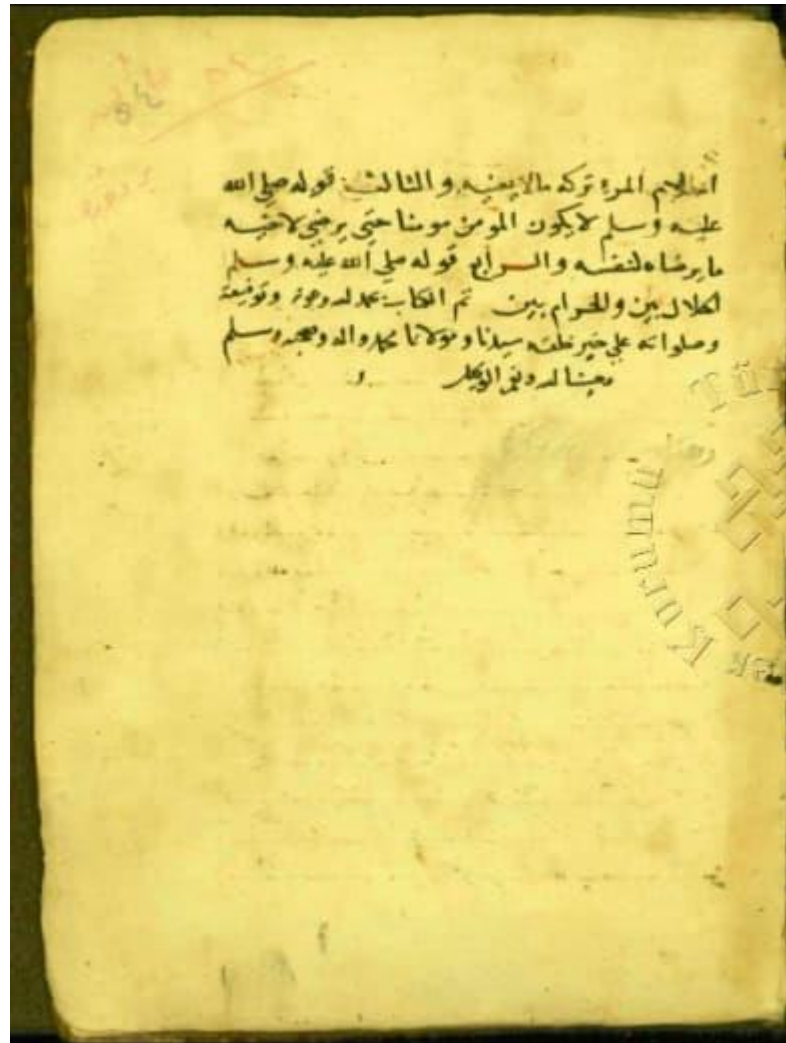 اسلام المرء تركه مالا يعنيه والثالث قوله صلى الله
عليه وسلم لا يكون المومن مومنا حتى يرضى لاخيه
ما يرضاه لنفسه والرابع قوله صلى الله عليه وسلم
الحلال بين والحرام بين تم الكتاب بحمد الله وعونه وتوفيقه
وصلواته على خير خلقه سيدنا ومولانا محمد واله وصحبه وسلم
حسبنا الله ونعم الوكيل